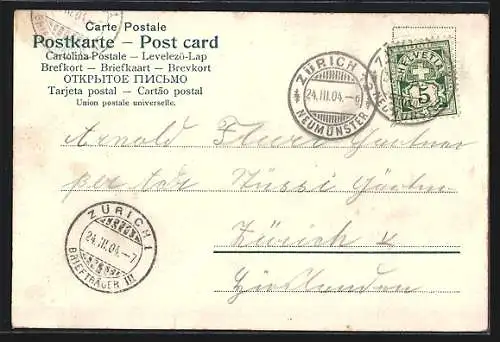 Carte Postale
Postkarte – Post card
Cartolina Postale – Levelező-Lap
Brefkort – Briefkaart – Brevkort
ОТКРЫТОЕ ПИСЬМО
Tarjeta postal – Cartão postal
Union postale universelle.
ZÜRICH
24.III.04.–9
NEUMÜNSTER
HELVETIA
5
Arnold Gärtner
per Adr
Zürich
ZÜRICH 1
24.III.04.–7
BRIEFTRÄGER III